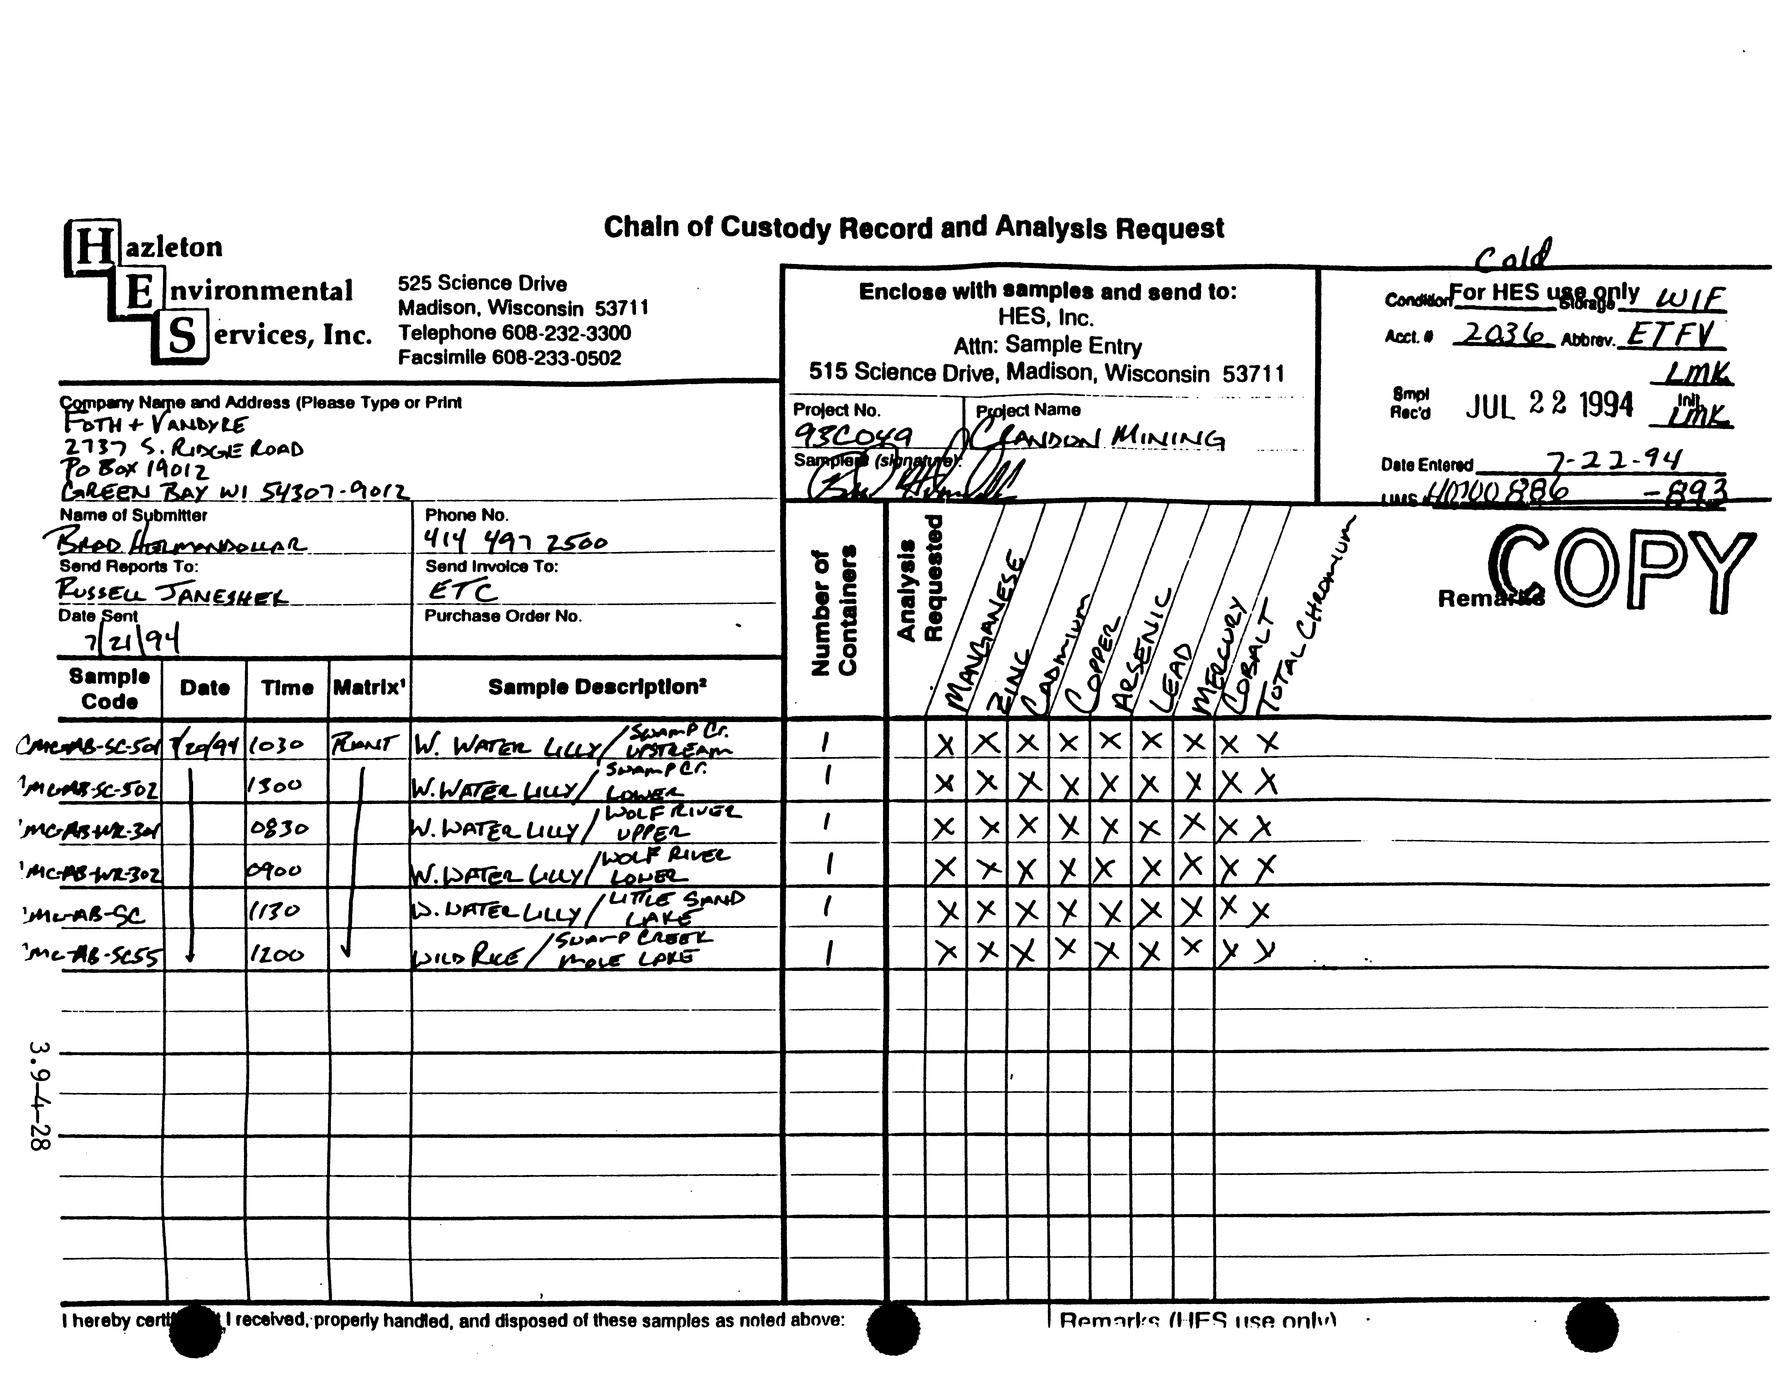 Chain of Custody Record and Analysis Request
Hazleton
Environmental
Services, Inc.
525 Science Drive
Madison, Wisconsin 53711
Telephone 608-232-3300
Facsimile 608-233-0502
Enclose with samples and send to:
HES, Inc.
Attn: Sample Entry
515 Science Drive, Madison, Wisconsin 53711
Cold
For HES use only
Condition Storage WIF
Acct. # 2036 Abbrev. ETFV
LMK
Smpl Rec'd JUL 22 1994 Init. LMK
Date Entered 7-22-94
LIMS # 40700886 -893
Company Name and Address (Please Type or Print
FOTH + VANDYKE
2737 S. RIDGE ROAD
PO BOX 19012
GREEN BAY WI 54307-9012
Project No. Project Name
93C049 CRANDON MINING
Samplers (signature):
Name of Submitter Phone No.
BRAD HERMANDOLLAR 414 497 2500
Send Reports To: Send Invoice To:
RUSSELL JANESHEK ETC
Date Sent Purchase Order No.
7/21/94
Number of Containers
Analysis Requested
MANGANESE
ZINC
CADMIUM
COPPER
ARSENIC
LEAD
MERCURY
COBALT
TOTAL CHROMIUM
COPY
Remarks
Sample Code Date Time Matrix¹ Sample Description²
CMC-AB-SC-501 7/20/94 1030 PLANT W. WATER LILLY / SWAMP CR. UPSTREAM 1 X X X X X X X X X
MC-AB-SC-502 1300 W. WATER LILLY / SWAMP CR. LOWER 1 X X X X X X X X X
MC-AB-WR-301 0830 W. WATER LILLY / WOLF RIVER UPPER 1 X X X X X X X X X
MC-AB-WR-302 0900 W. WATER LILLY / WOLF RIVER LOWER 1 X X X X X X X X X
MC-AB-SC 1130 W. WATER LILLY / LITTLE SAND LAKE 1 X X X X X X X X X
MC-AB-SC55 1200 WILD RICE / SWAMP CREEK MOLE LAKE 1 X X X X X X X X X
3.9-4-28
I hereby I received, properly handled, and disposed of these samples as noted above:
Remarks (HES use only)